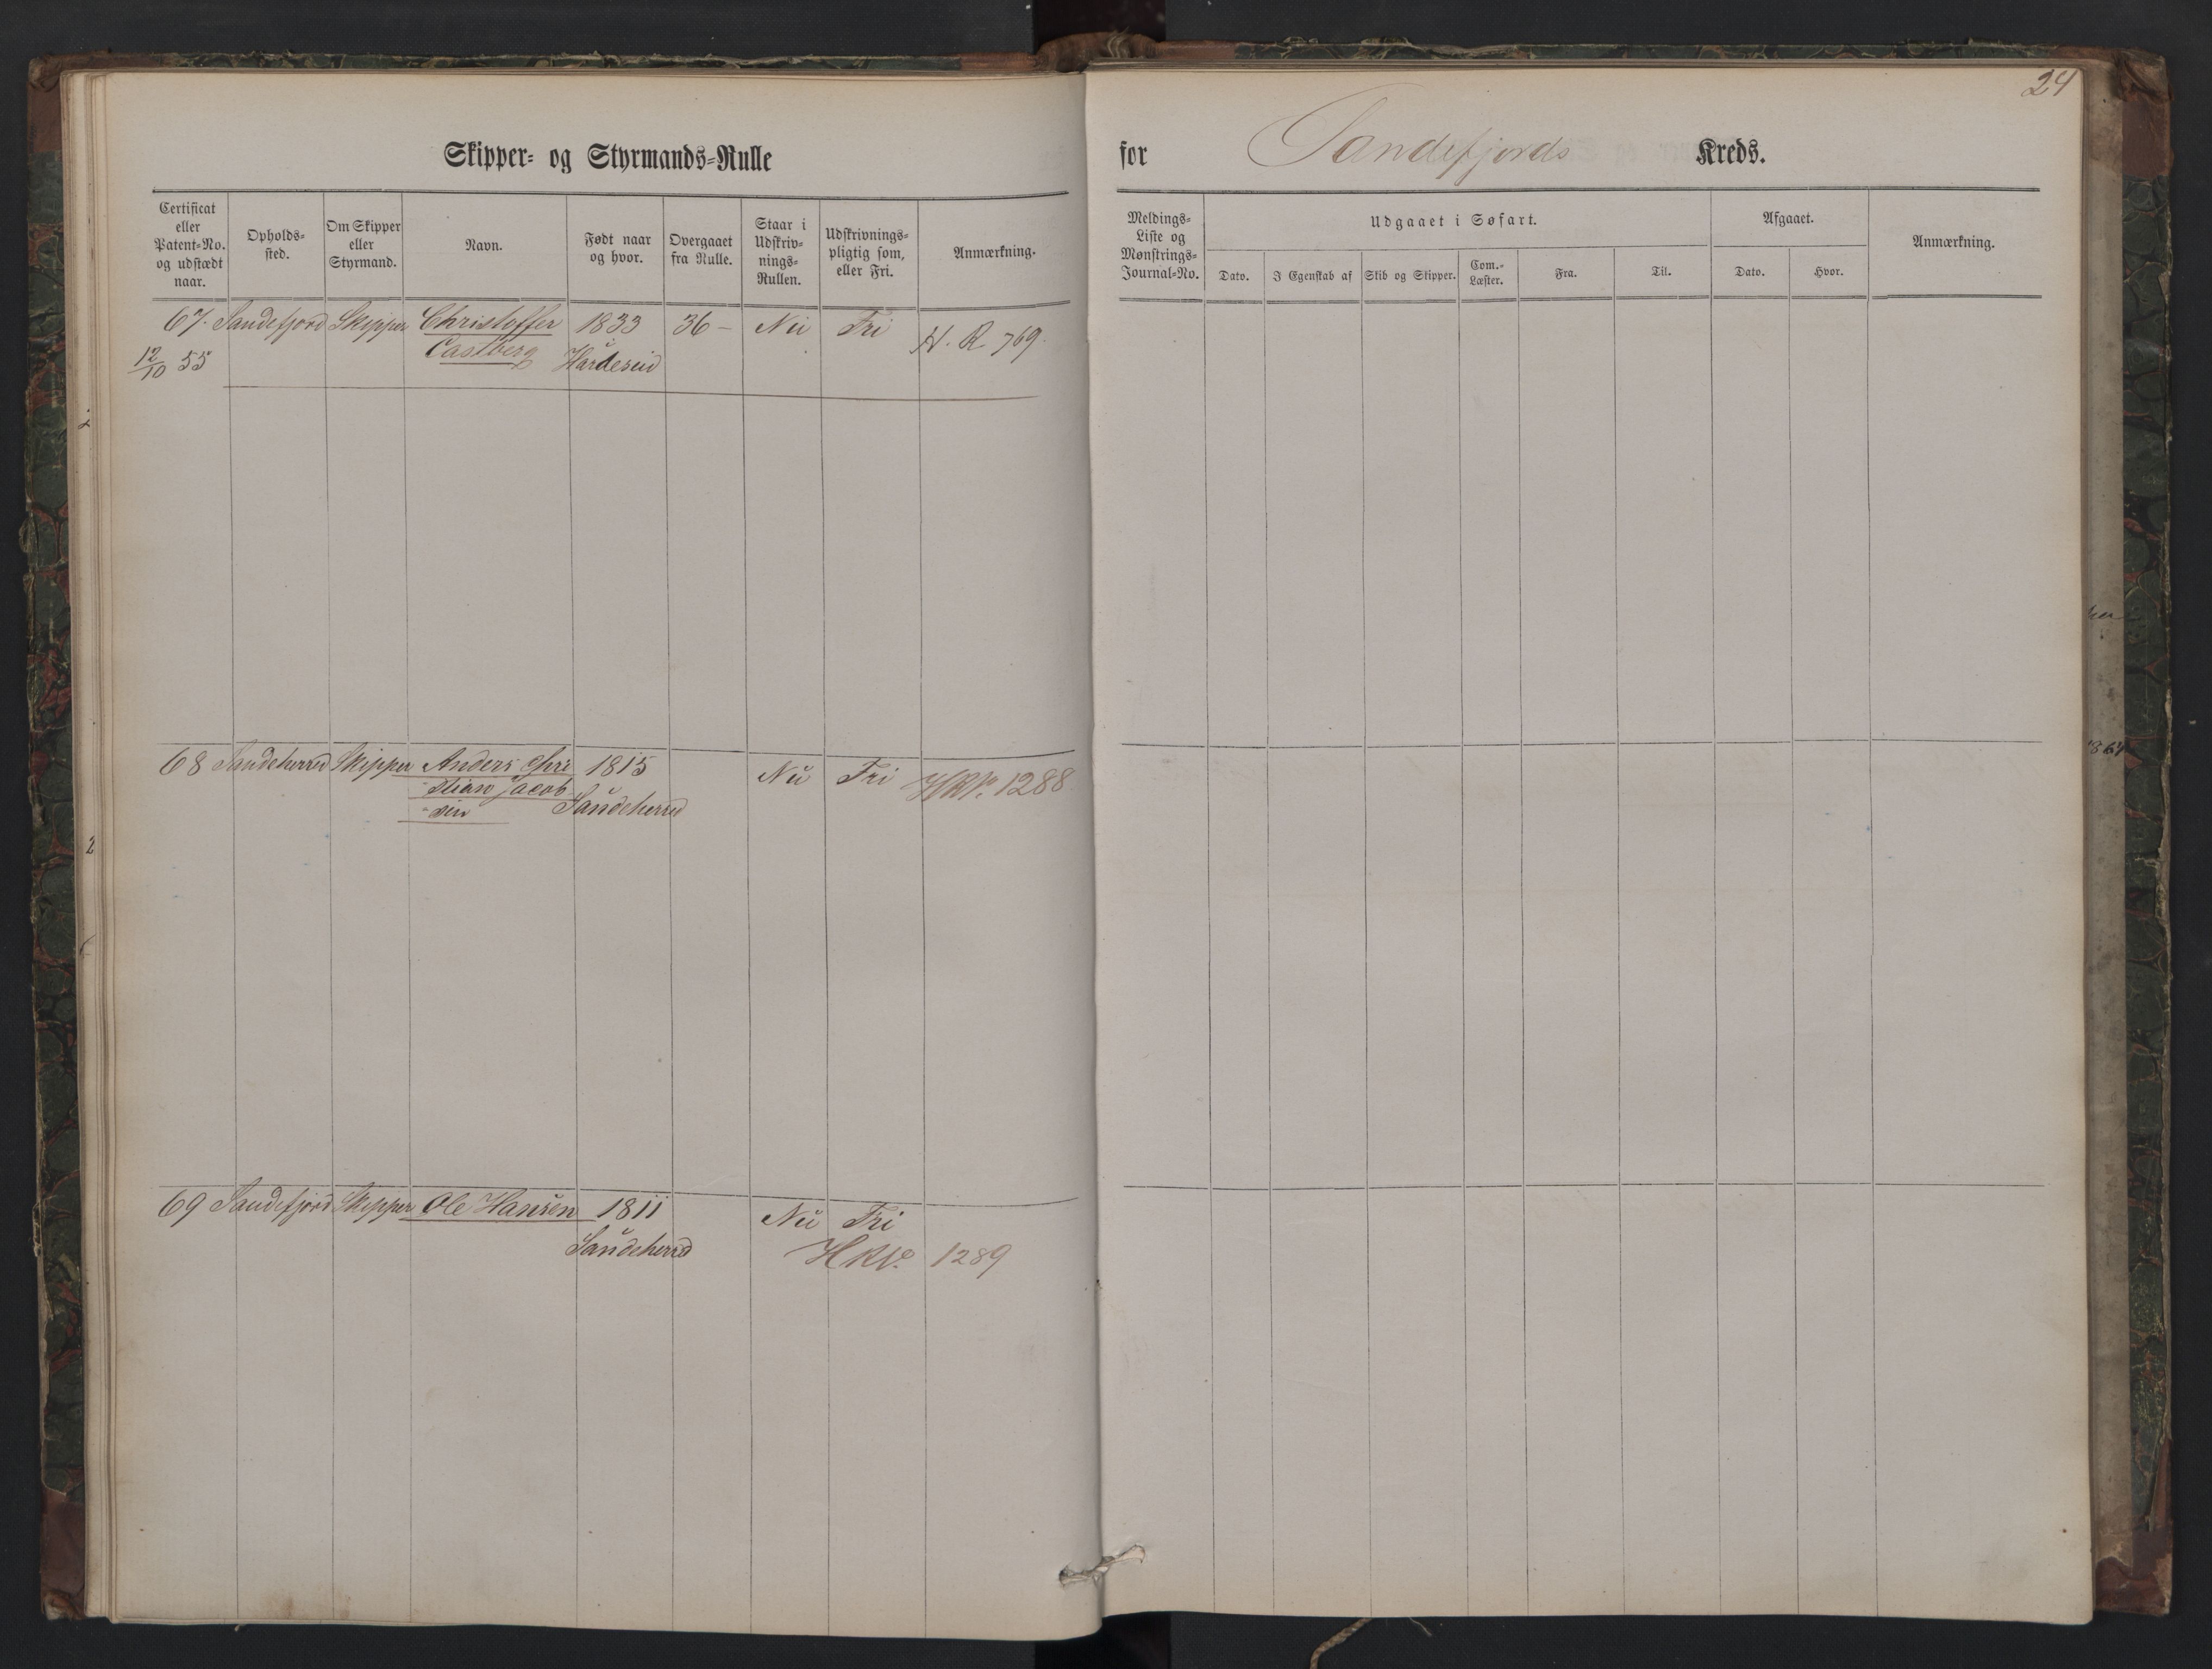 24
Skipper- og Styrmands-Rulle
for Sandefjords Kreds.
Certificat eller Patent-No. og udstædt naar.
Opholds-sted.
Om Skipper eller Styrmand.
Navn.
Født naar og hvor.
Overgaaet fra Rulle.
Staar i Udskriv-nings-Rullen.
Udskrivnings-pligtig som, eller Fri.
Anmærkning.
Meldings-Liste og Mønstrings-Journal-No.
Udgaaet i Søfart.
Dato.
I Egenskab af
Skib og Skipper.
Com.-Læster.
Fra.
Til.
Afgaaet.
Dato.
Hvor.
Anmærkning.
67. Sandefjord Skipper Christoffer 1833 36 — Nei Fri H. R. 769.
12/10 55 Castberg
68 Sandeherred Skipper Anders Chri 1815 Nei Fri 1288
stian Jacob
sen Sandeherred
69 Sandefjord Skipper Ole Hansen 1811 Nei Fri
Sandeherred 1289